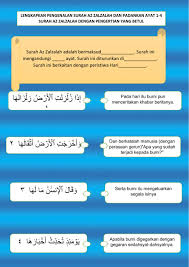 LENGKAPKAN PENGENALAN SURAH AZ ZALZALAH DAN PADANKAN AYAT 1-4
SURAH AZ ZALZALAH DENGAN PENGERTIAN YANG BETUL
Surah Az Zalzalah bermaksud Surah ini
mengandungi ayat. Surah ini diturunkan di
Surah ini berkaitan dengan peristiwa Hari
إِذَا زُلْزِلَتِ ٱلْأَرْضُ زِلْزَالَهَا ١
Pada hari itu bumi pun
menceritakan khabar beritanya.
وَأَخْرَجَتِ ٱلْأَرْضُ أَثْقَالَهَا ٢
Dan berkatalah manusia (dengan
perasaan gerun);"Apa yang sudah
terjadi kepada bumi?"
وَقَالَ ٱلْإِنسَٰنُ مَا لَهَا ٣
Serta bumi itu mengeluarkan
segala isinya
يَوْمَئِذٍ تُحَدِّثُ أَخْبَارَهَا ٤
Apabila bumi digegarkan dengan
gegaran sedahsyat-dahsyatnya.